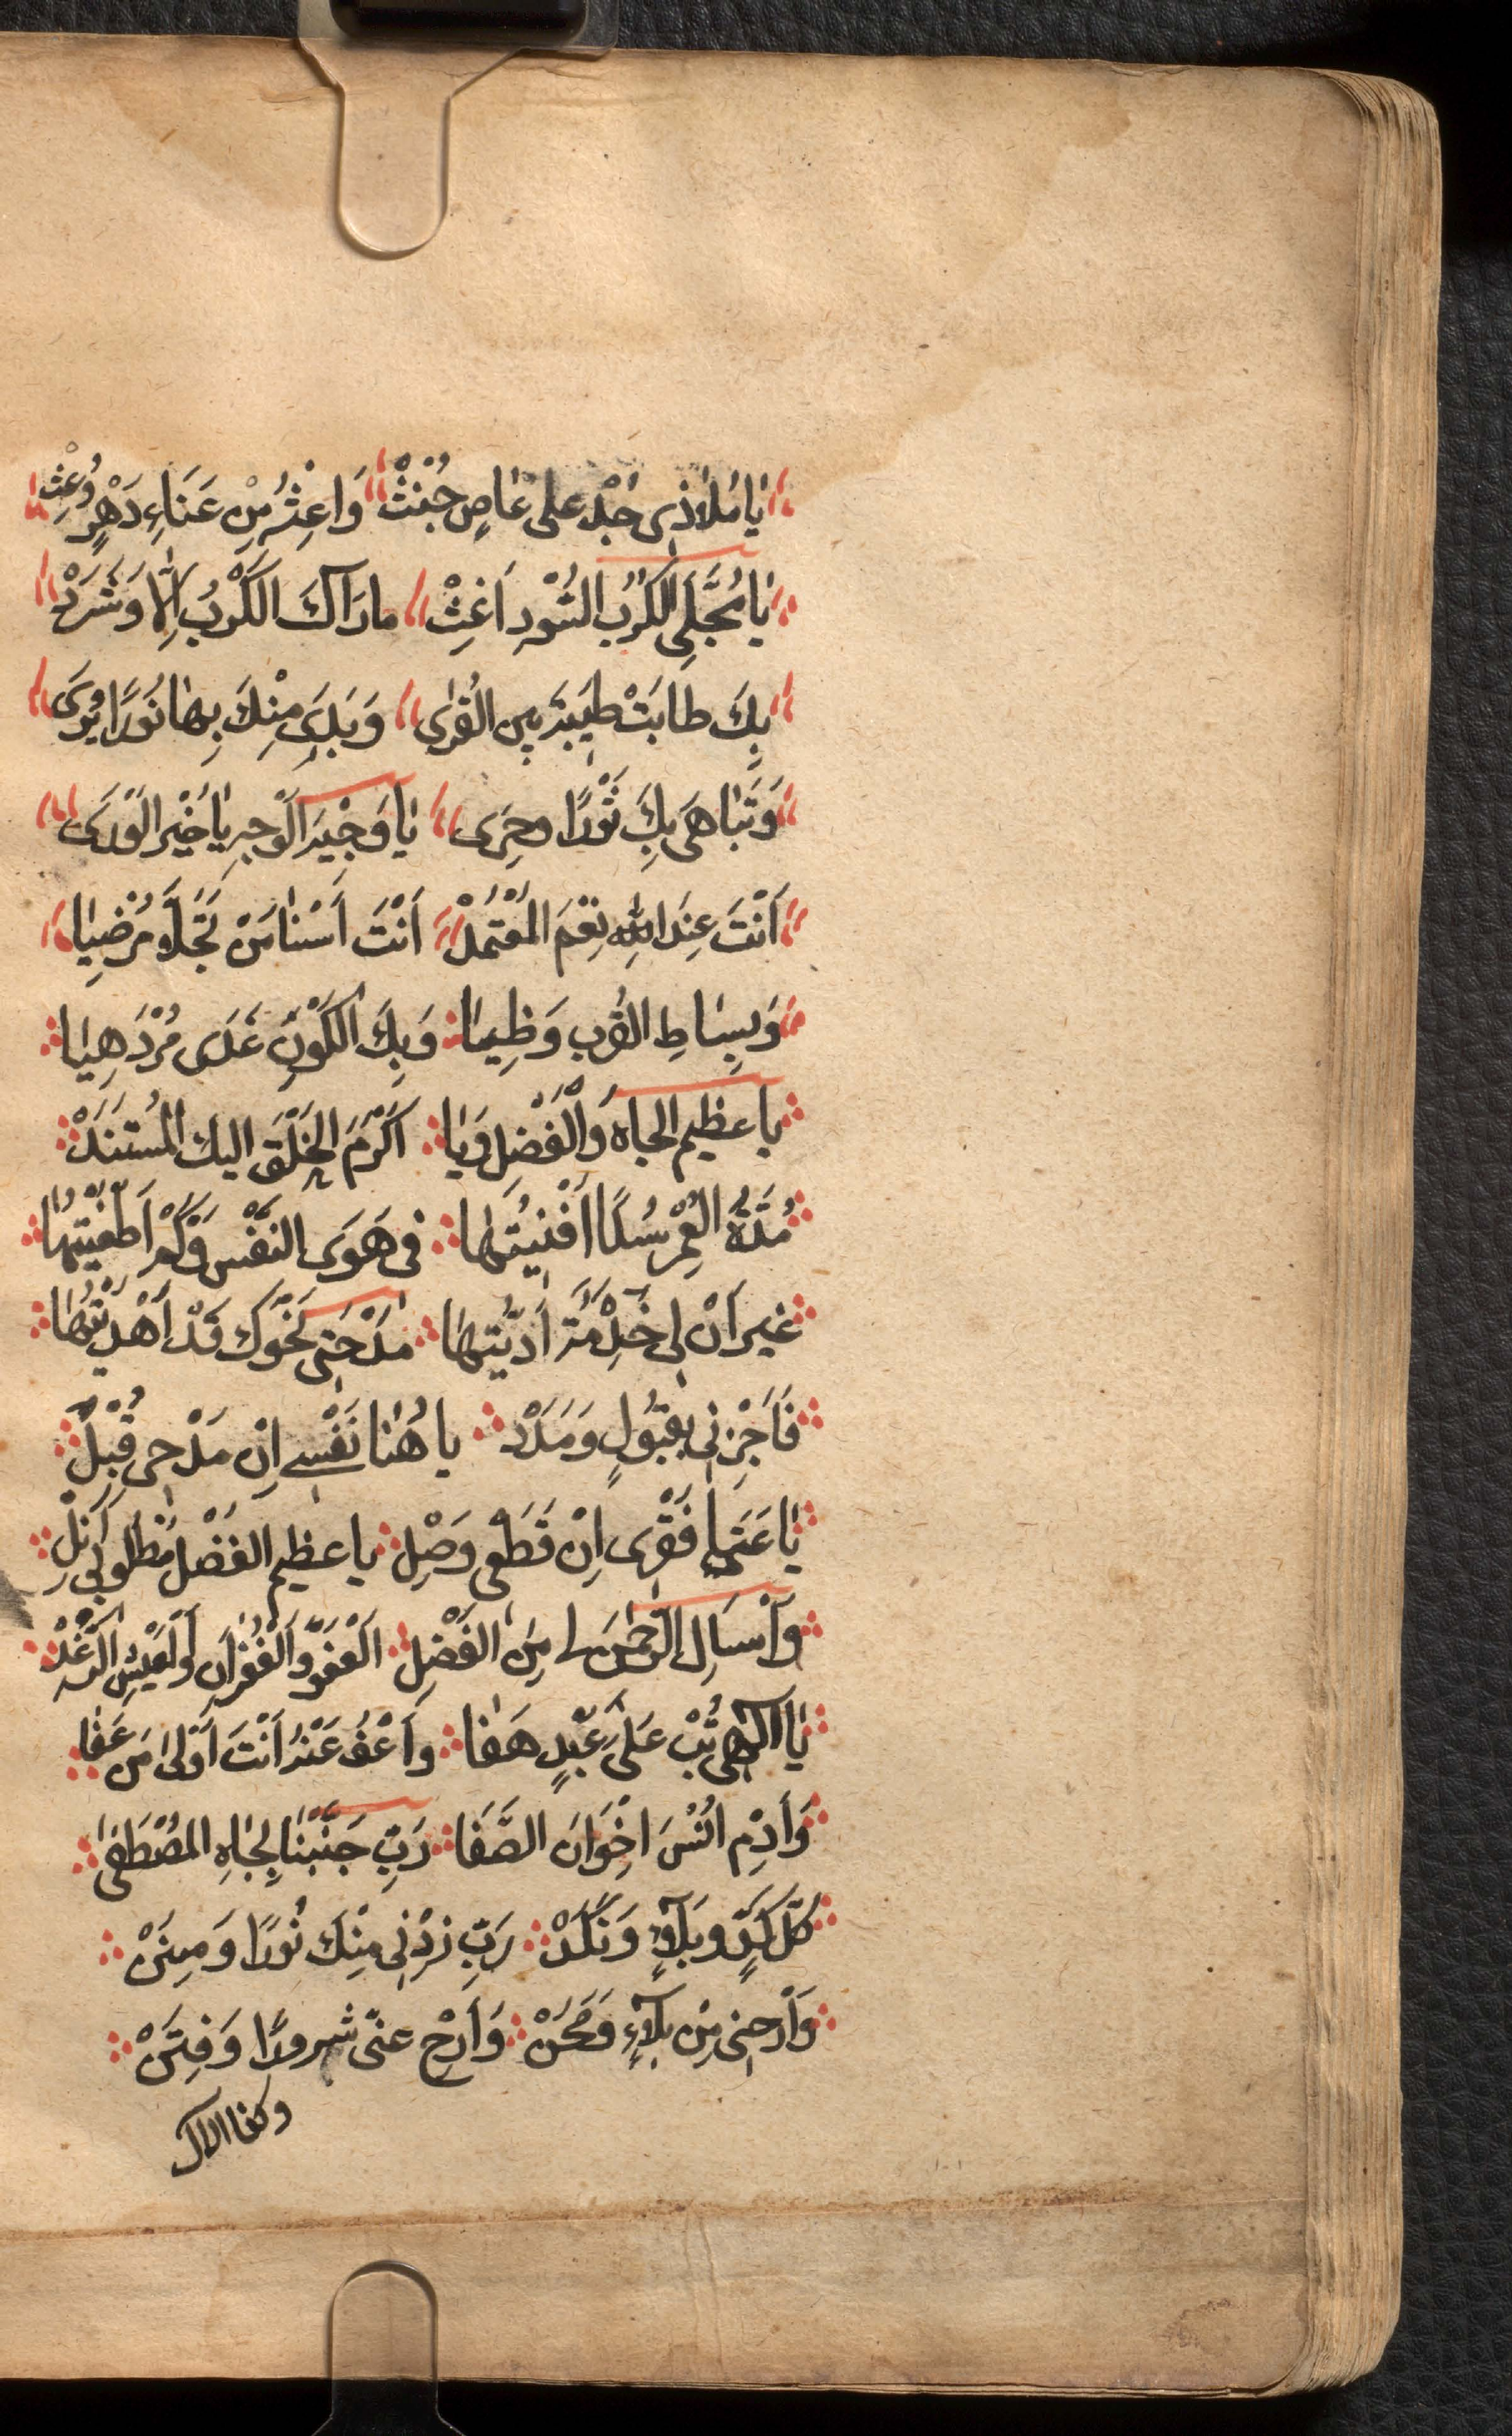 يَا مَلَاذِى جُدْ عَلى عَاصٍ جُنِثْ وَاغِثْهُ مِنْ عَنَاءِ دَهْرٍ وُعِثْ
يَا مُجَلِّى الكَرْبُ السُّوْدِ اَغِثْ مارَآكَ الكَرْبُ اِلَّا وَشَرَدْ
بِكَ طابَتْ طَيْبَة بين القُرٰى وَبَدَى مِنْكَ بِهَا نُورًا يُرَى
وَتَبَاهَى بِكَ ثَوْرًا وحِرَى يَا وَجِيْهَ الْوَجْهِ يَا خَيْر الوَرَى
اَنْتَ عِنَد اللّٰهِ نِعْمَ المُعْتَمَدْ اَنْتَ اَسْنَا مَنْ تَجَلَّا مُرْضِيَا
وَبِسَاطِ القُرب وَظِيمَا وَبِكَ الكَوْنِ غَدَى مُزْدَهِيَا
يا عظيم الجاه وَالْفَضْلِ وَيَا اَكْرَمَ الخَلْقِ اليك المُسْتَنَدْ
مُدَّةُ العُمْرِ سُدًا اَفْنَيْتُهَا فى هَوَى النَفْسِ وَكَمْ اَطْغَيْتُهَا
غير اَنْ لى خِدْمَة اَدَّيْتُهَا مَدْحَتِى نَحْوَك قَدْ اَهْدَيْتُهَا
فَاَجِزْنِى بِقَبُولٍ وَمَدَدْ يا هُنَا نَفْسِى اِنْ مَدْحِى قُبِلْ
يَا غَنَى فَقْرِى اِنْ قَطْعِى وَصِلْ يا عظيم الفَضْل مَطْلُوبِى اَنِلْ
وَاَسْاَلِ الرَّحْمٰنَ لى مِنَ الفَضْلِ الْعَفْوَ وَالْغُفْرَانِ وَالْعَيْشِ الرَّغَدْ
يَا اِلٰهِى تُبْ عَلَى عَبْدٍ هَفَا وَاَعْفُ عَنْهُ اَنْتَ اَوْلَى مَن عَفَا
وَاَدِم اُنْسَ اخْوَانَ الصَّفَا رَبِّ جَنِّبْنَا بِجَاهِ المُصْطَفٰى
كُلّ كَدٍّ وبَلَآءٍ وَنَكَدْ رَبِّ زِدْنِى مِنْكَ نُورًا وَمِنَنْ
وَاَرِحْنِى مِنْ بَلآءٍ وَمِحَنْ وَاَرِحْ عنّى شرورًا وَفِتَنْ
وكفا الال